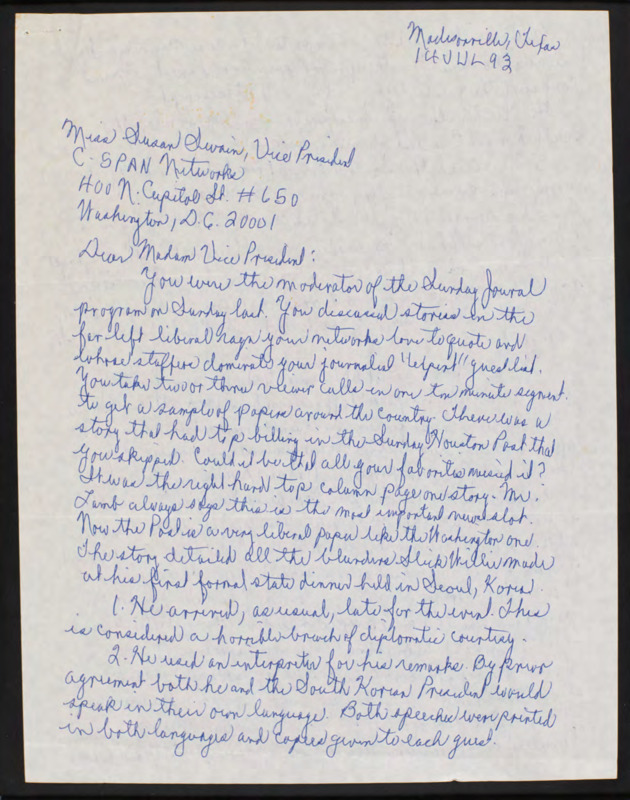 Madisonville, Texas
14 JUL 93
Miss Susan Swain, Vice President
C-SPAN Networks
400 N. Capitol St. #650
Washington, D.C. 20001
Dear Madam Vice President:
You were the moderator of the Sunday Journal
program on Sunday last. You discussed stories in the
far left liberal rags your networks love to quote and
whose staffers dominate your journalist "expert" guest list.
You take two or three viewer calls in one ten minute segment
to get a sample of papers around the country. There was a
story that had top billing in the Sunday Houston Post that
you skipped. Could it be that all your favorites missed it?
It was the right hand top column page one story. Mr.
Lamb always says this is the most important news slot.
Now the Post is a very liberal paper like the Washington one.
The story detailed all the blunders Slick Willie made
at his first formal state dinner held in Seoul, Korea.
1. He arrived, as usual, late for the event. This
is considered a horrible breach of diplomatic courtesy.
2. He used an interpreter for his remarks. By prior
agreement both he and the South Korean President would
speak in their own language. Both speeches were printed
in both languages and copies given to each guest.